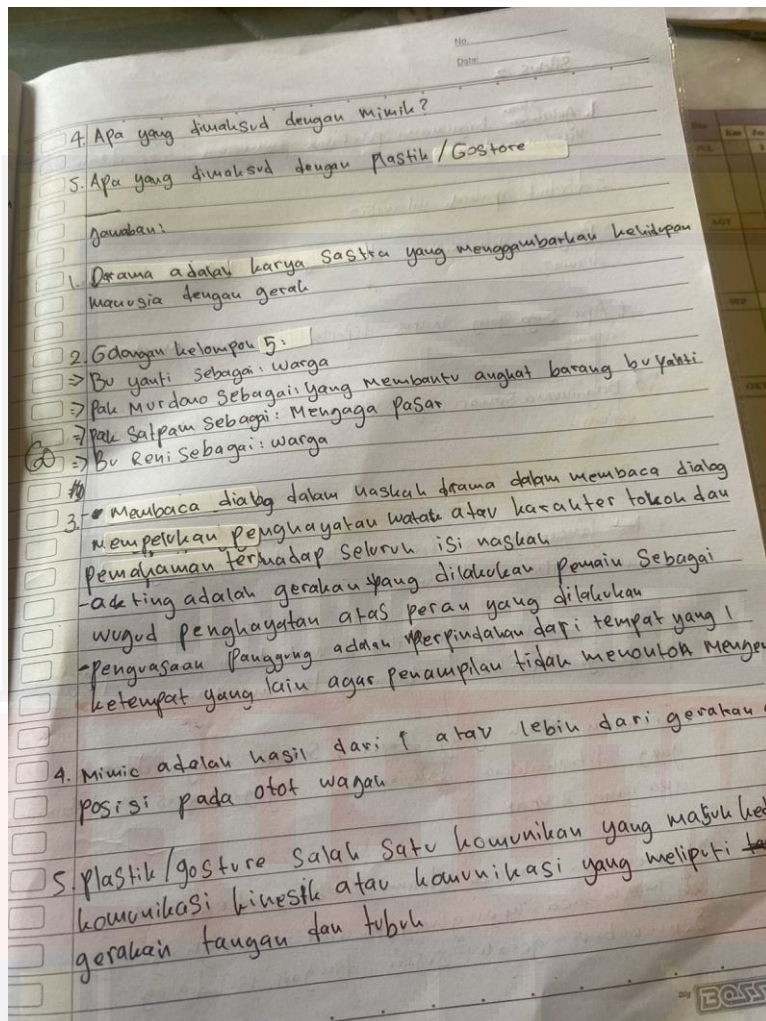 No.
Date:
4. Apa yang dimaksud dengan mimik?
5. Apa yang dimaksud dengan Plastik/Gostore
Jawaban:
1. Drama adalah karya sastra yang menggambarkan kehidupan
manusia dengan gerak
2. Golongan kelompok 5:
=> Bu yanti sebagai: warga
=> Pak Murdono sebagai: yang membantu angkat barang bu yanti
=> Pak Satpam Sebagai: Mengaga Pasar
=> Bu Reni Sebagai: warga
3. - Membaca dialog dalam naskah drama dalam membaca dialog
memperlukan penghayatan watak atau karakter tokoh dan
pemahaman terhadap seluruh isi naskah
- acting adalah gerakan yang dilakukan pemain Sebagai
wugud penghayatan atas peran yang dilakukan
- penguasaan Panggung adalah Perpindahan dari tempat yang 1
ketempat yang lain agar penampilan tidak menonton
4. Mimic adalah hasil dari 1 atau lebih dari gerakan
posisi pada otot wagah
5. plastik/gosture salah satu komunikan yang masuk
komunikasi kinesik atau komunikasi yang meliputi
gerakan tangan dan tubuh
BOSS